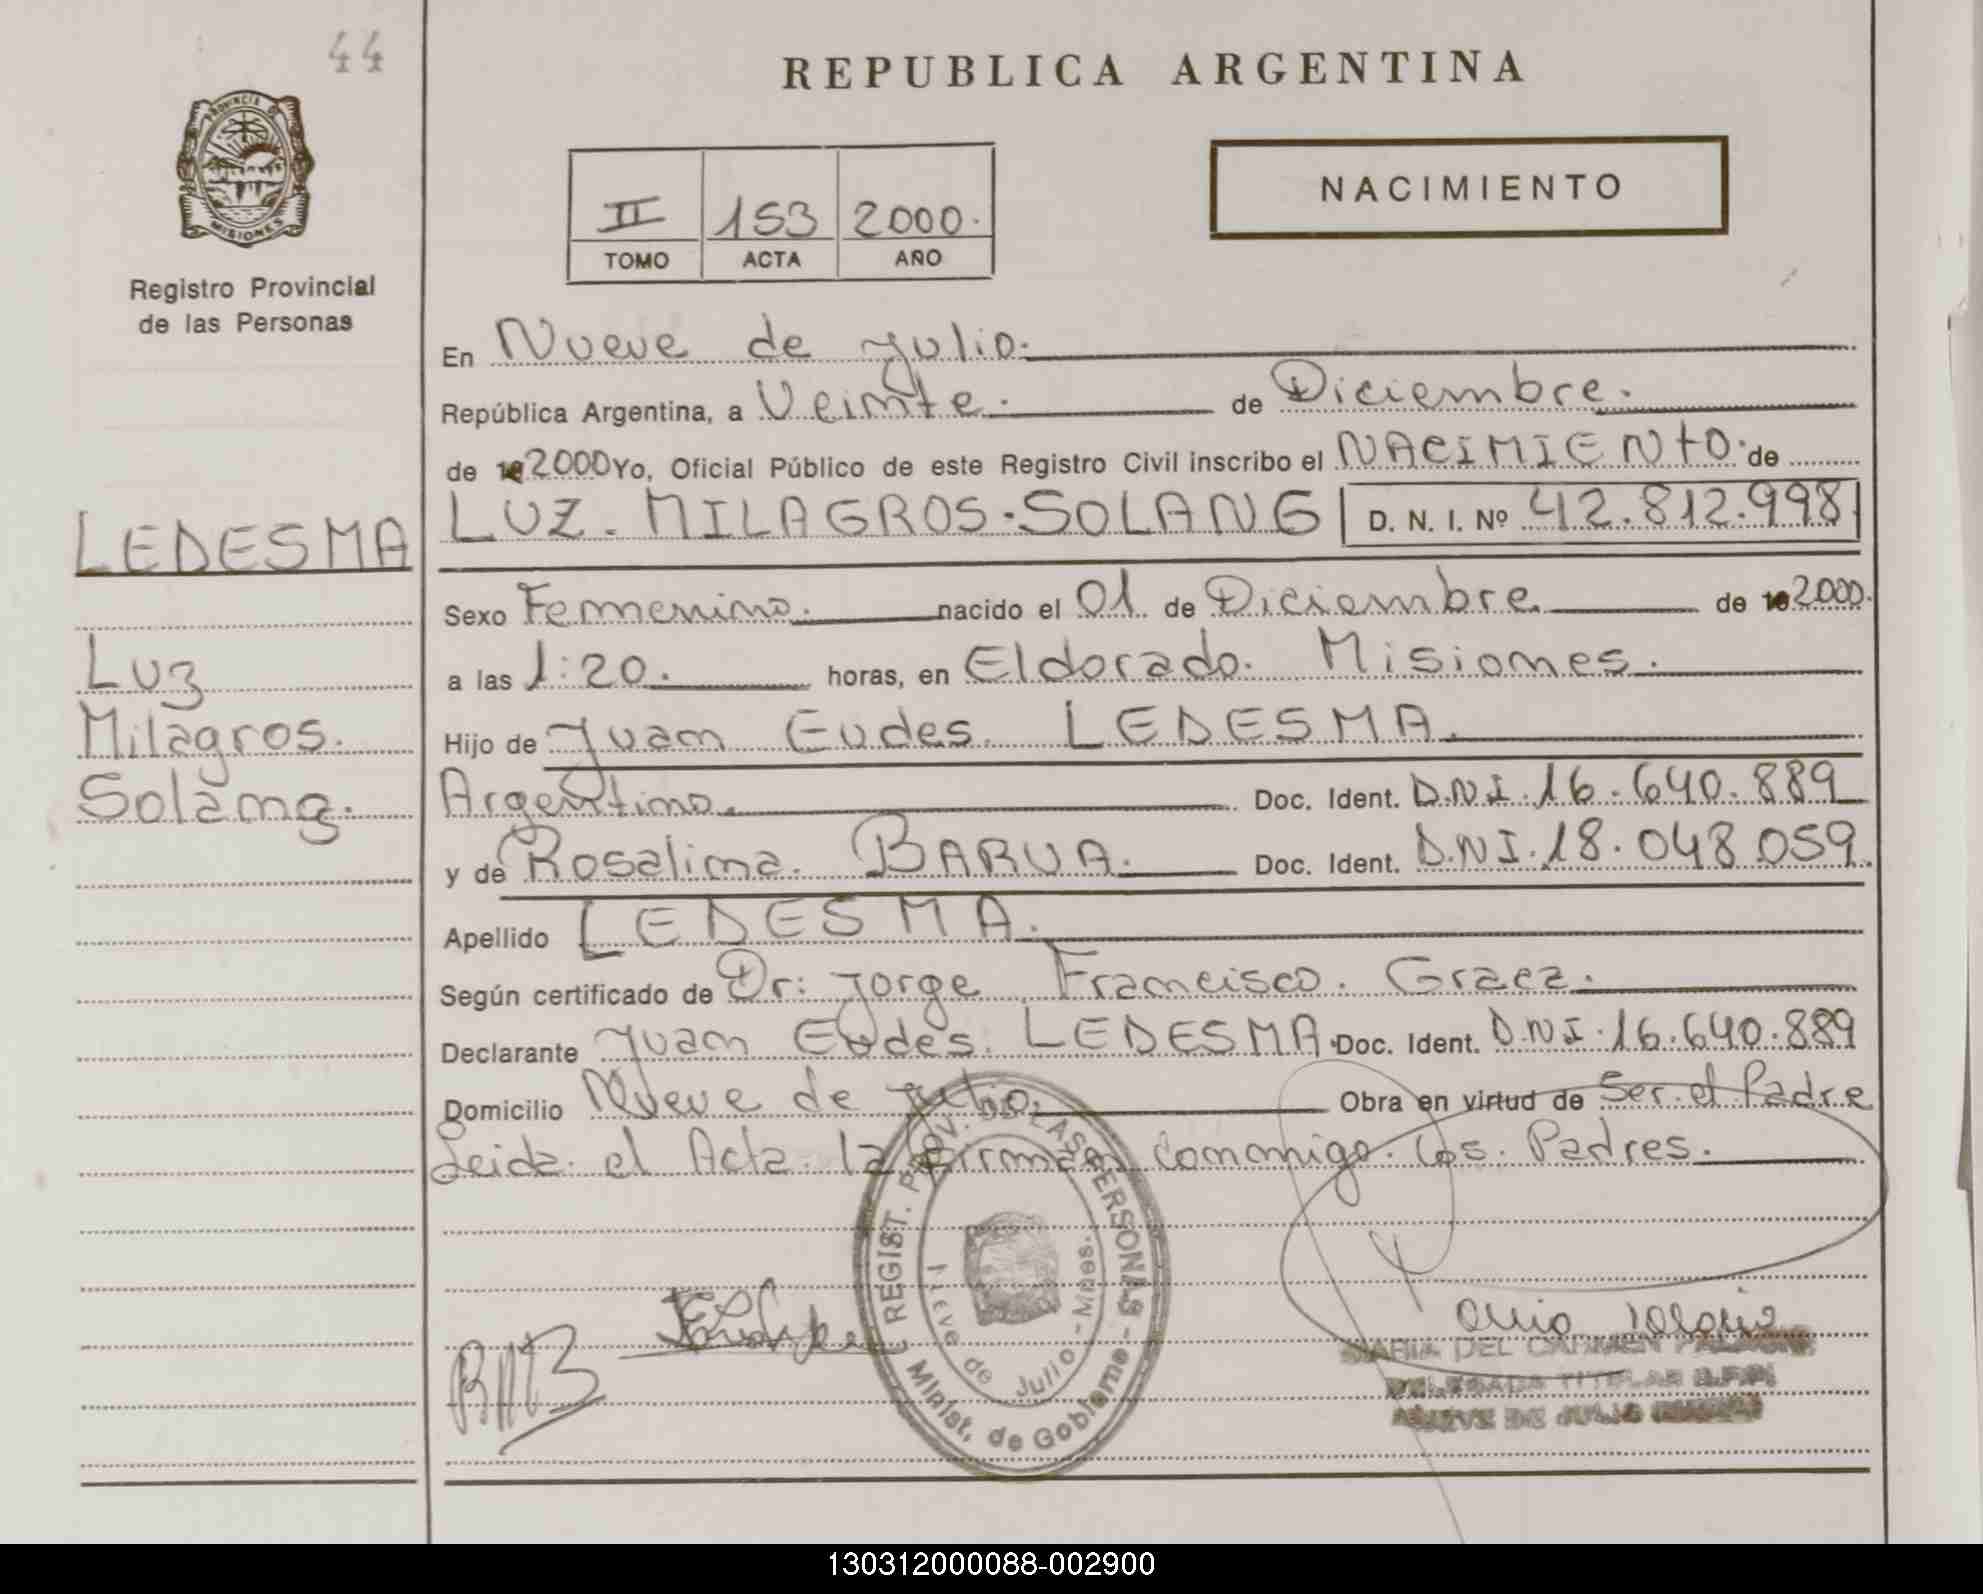 44
REPUBLICA ARGENTINA
PROVINCIA D
MISIONES
NACIMIENTO
II 153 2000.
TOMO ACTA AÑO
Registro Provincial
de las Personas
En Nueve de Julio.
República Argentina, a Veinte. de Diciembre.
de 19 2000 Yo, Oficial Público de este Registro Civil inscribo el NACIMIENTO. de
LEDESMA
LUZ. MILAGROS. SOLANG D. N. I. Nº 42.812.998
Sexo Femenino. nacido el 01 de Diciembre. de 19 2000.
Luz
a las 1:20. horas, en Eldorado. Misiones.
Milagros.
Hijo de Juan Eudes. LEDESMA.
Solang.
Argentino. Doc. Ident. D.N.I. 16.640.889
y de Rosalina. BARUA. Doc. Ident. D.N.I. 18.048.059.
Apellido LEDESMA.
Según certificado de Dr: Jorge Francisco. Graez.
Declarante Juan Eudes. LEDESMA. Doc. Ident. D.N.I. 16.640.889
Domicilio Nueve de Julio. Obra en virtud de Ser el Padre
Leida el Acta la firman conmigo. los. Padres.
REGIST. PROV. DE LAS PERSONAS
Nueve de Julio - Mnes.
Minist. de Gobierno
MARIA DEL CARMEN
DELEGADA TITULAR
NUEVE DE JULIO
130312000088-002900